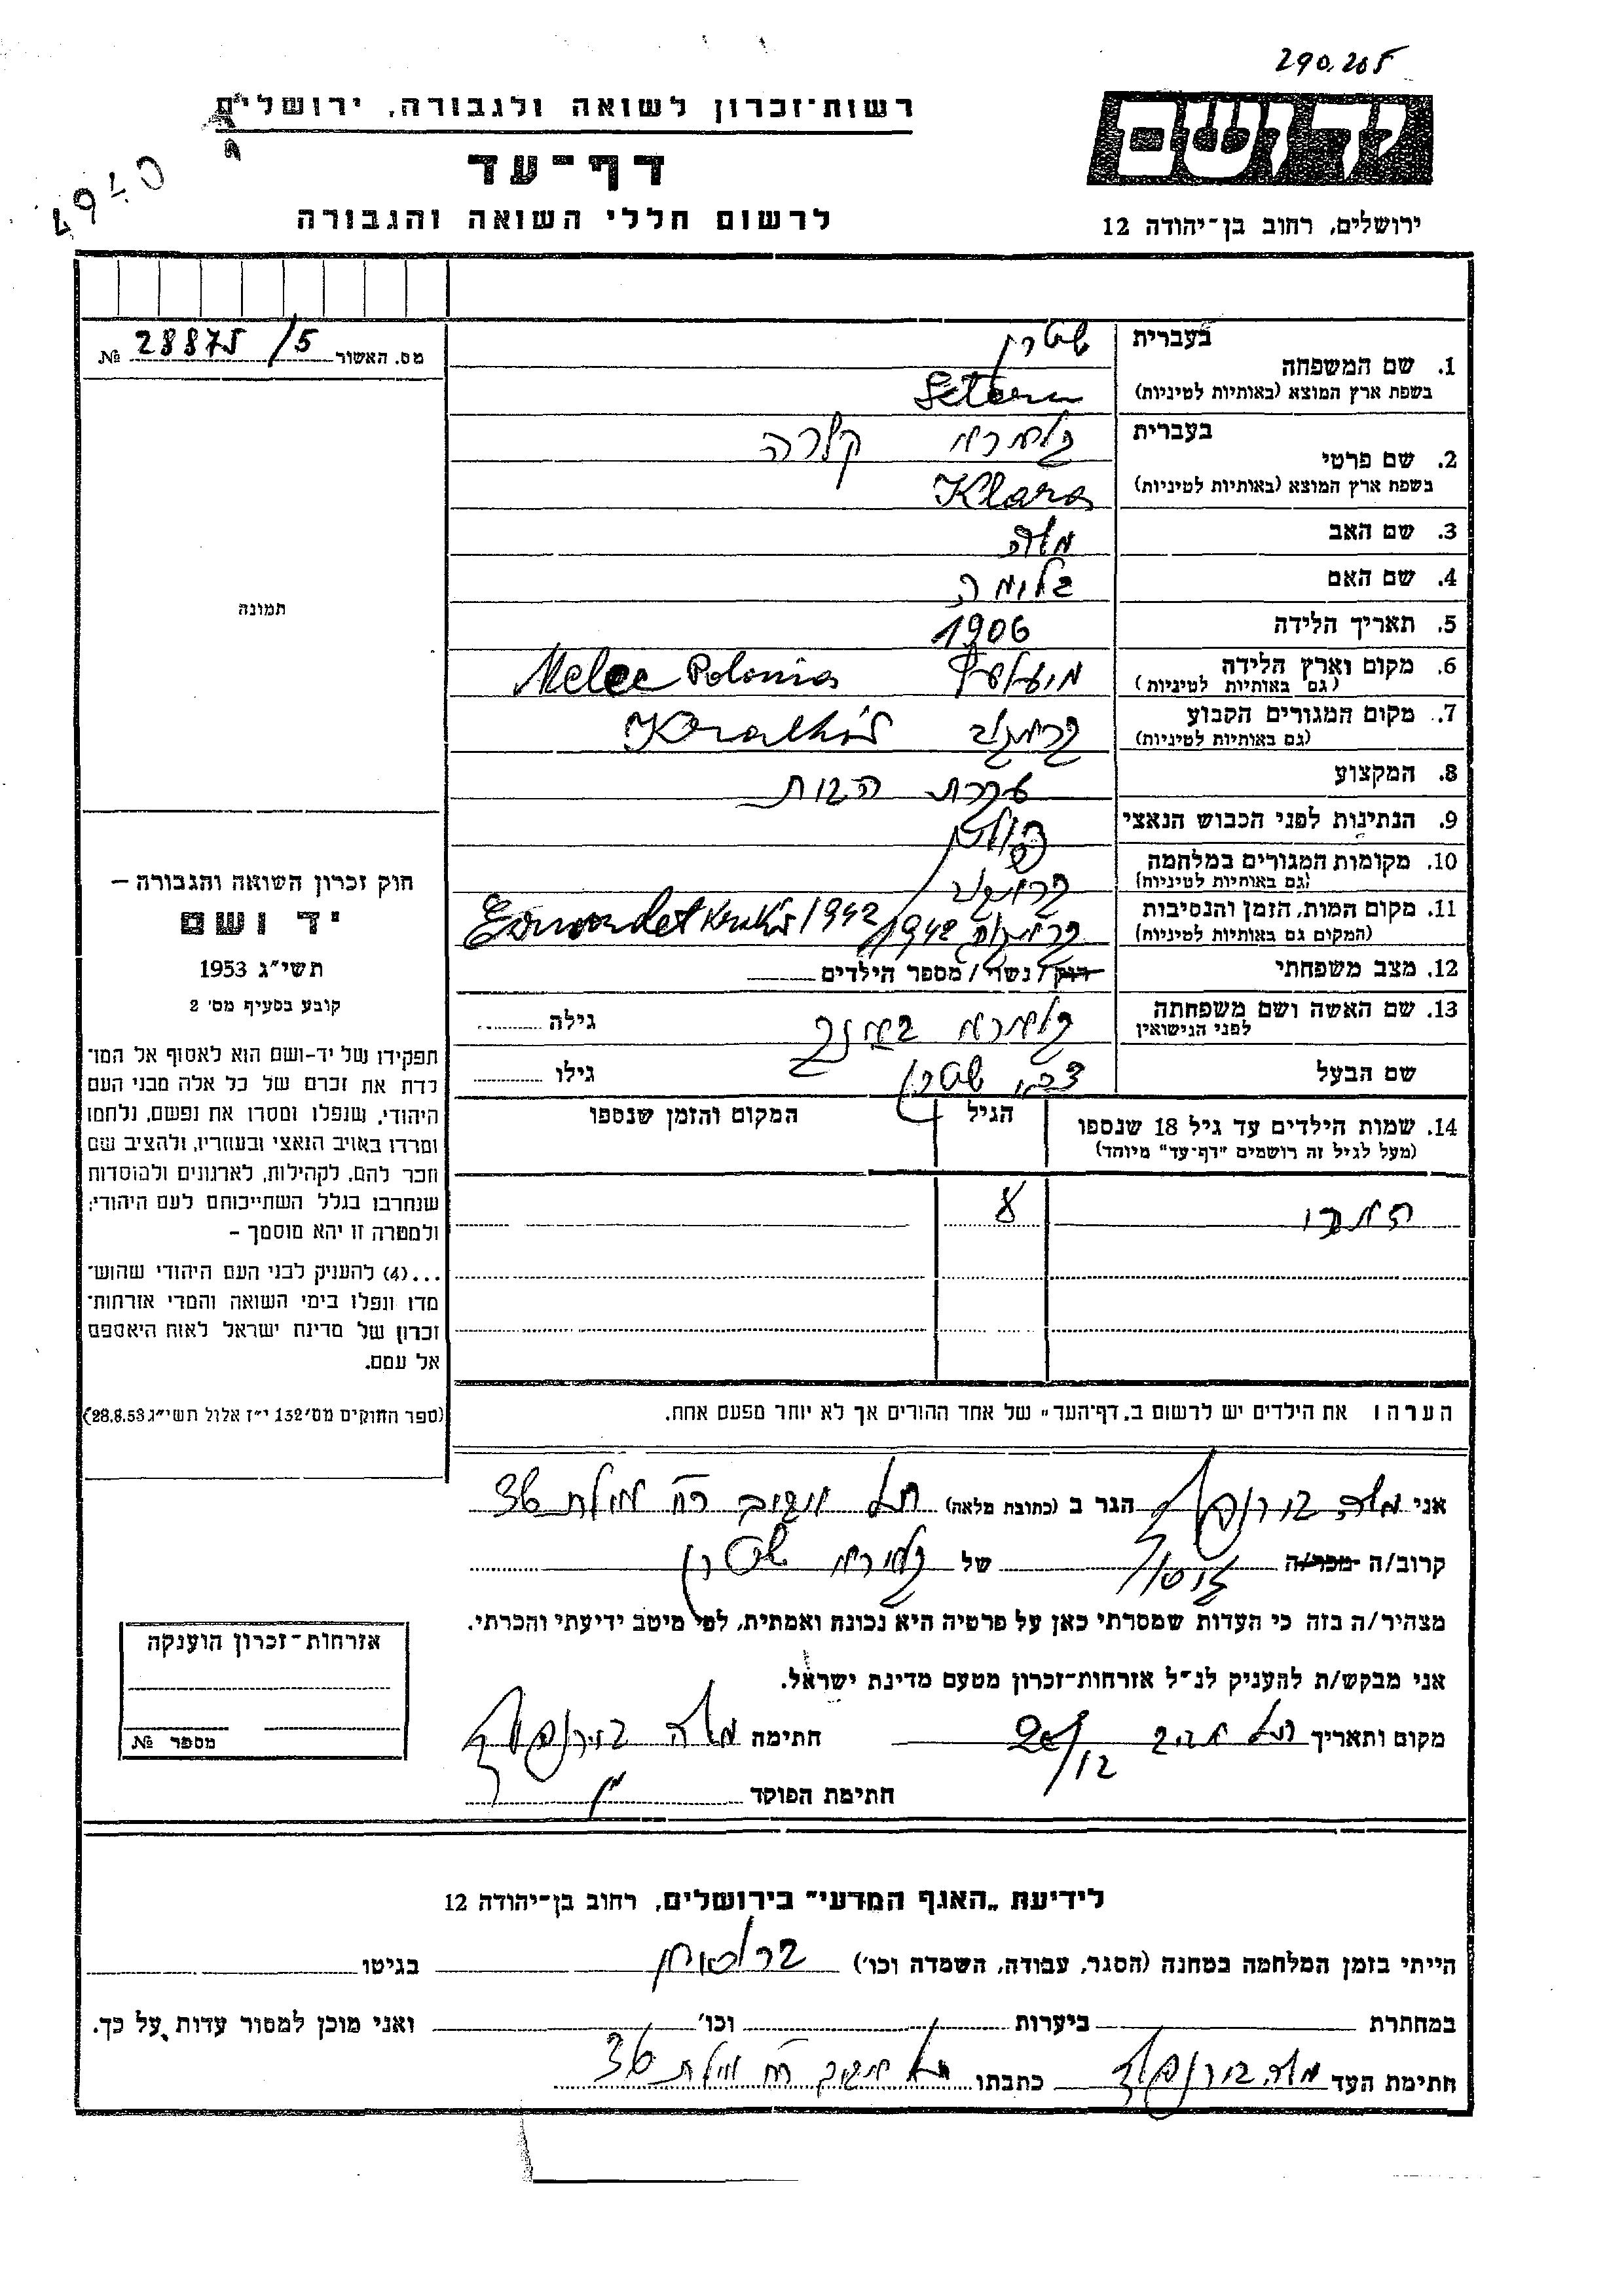 290.205
רשות־זכרון לשואה ולגבורה, ירושלים
דף־עד
לרשום חללי השואה והגבורה
יד ושם
ירושלים, רחוב בן־יהודה 12
מס. האשור 28875/5 №
תמונה
חוק זכרון השואה והגבורה —
יד ושם
תשי״ג 1953
קובע בסעיף מס׳ 2
תפקידו של יד-ושם הוא לאסוף אל המו־
לדת את זכרם של כל אלה מבני העם
היהודי, שנפלו ומסרו את נפשם, נלחמו
ומרדו באויב הנאצי ובעוזריו, ולהציב שם
וזכר להם, לקהילות, לארגונים ולמוסדות
שנחרבו בגלל השתייכותם לעם היהודי;
ולמטרה זו יהא מוסמך —
...(4) להעניק לבני העם היהודי שהוש־
מדו ונפלו בימי השואה והמרי אזרחות־
זכרון של מדינת ישראל לאות היאספם
אל עמם.
(ספר החוקים מס׳ 132 י״ז אלול תשי״ג 28.8.53)
בעברית שטרן
1. שם המשפחה
בשפת ארץ המוצא (באותיות לטיניות)
בעברית קלארא קלרה
2. שם פרטי
בשפת ארץ המוצא (באותיות לטיניות) Klara
3. שם האב משה
4. שם האם
5. תאריך הלידה 1906
6. מקום וארץ הלידה Melec Polonia
(גם באותיות לטיניות)
7. מקום המגורים הקבוע קראקוב
(גם באותיות לטיניות)
8. המקצוע עקרת הבית
9. הנתינות לפני הכבוש הנאצי
10. מקומות המגורים במלחמה קראקוב
(גם באותיות לטיניות)
11. מקום המות, הזמן והנסיבות קראקוב 1942 / 1942
(המקום גם באותיות לטיניות)
12. מצב משפחתי רווק / נשוי / מספר הילדים
13. שם האשה ושם משפחתה קלארא גילה
לפני הנישואין
שם הבעל צבי שטרן גילו
14. שמות הילדים עד גיל 18 שנספו הגיל המקום והזמן שנספו
(מעל לגיל זה רושמים "דף־עד" מיוחד)
8
הערה: את הילדים יש לרשום ב„דף־העד" של אחד ההורים אך לא יותר מפעם אחת.
אני משה הגר ב (כתובת מלאה) תל אביב 36
קרוב/ה מכר/ה של שטרן
מצהיר/ה בזה כי העדות שמסרתי כאן על פרטיה היא נכונה ואמתית, לפי מיטב ידיעתי והכרתי.
אני מבקש/ת להעניק לנ״ל אזרחות־זכרון מטעם מדינת ישראל.
מקום ותאריך תל אביב חתימה משה
חתימת הפוקד
אזרחות־זכרון הוענקה
מספר №
לידיעת „האגף המדעי" בירושלים, רחוב בן־יהודה 12
הייתי בזמן המלחמה במחנה (הסגר, עבודה, השמדה וכו׳) בגיטו
במחתרת ביערות וכו׳ ואני מוכן למסור עדות על כך.
חתימת העד משה כתבתו תל אביב 36